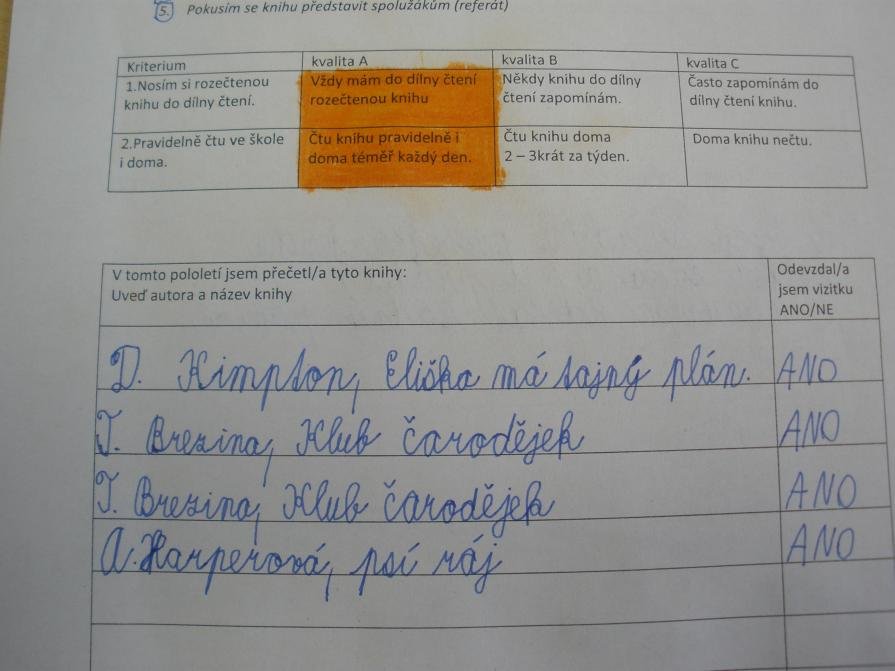 5. Pokusím se knihu představit spolužákům (referát)
Kriterium
kvalita A
kvalita B
kvalita C
1.Nosím si rozečtenou
knihu do dílny čtení.
Vždy mám do dílny čtení
rozečtenou knihu
Někdy knihu do dílny
čtení zapomínám.
Často zapomínám do
dílny čtení knihu.
2.Pravidelně čtu ve škole
i doma.
Čtu knihu pravidelně i
doma téměř každý den.
Čtu knihu doma
2 – 3krát za týden.
Doma knihu nečtu.
V tomto pololetí jsem přečetl/a tyto knihy:
Uveď autora a název knihy
Odevzdal/a
jsem vizitku
ANO/NE
D. Kimpton, Eliška má tajný plán. ANO
T. Brezina, Klub čarodějek ANO
T. Brezina, Klub čarodějek ANO
A. Harperová, psí ráj ANO